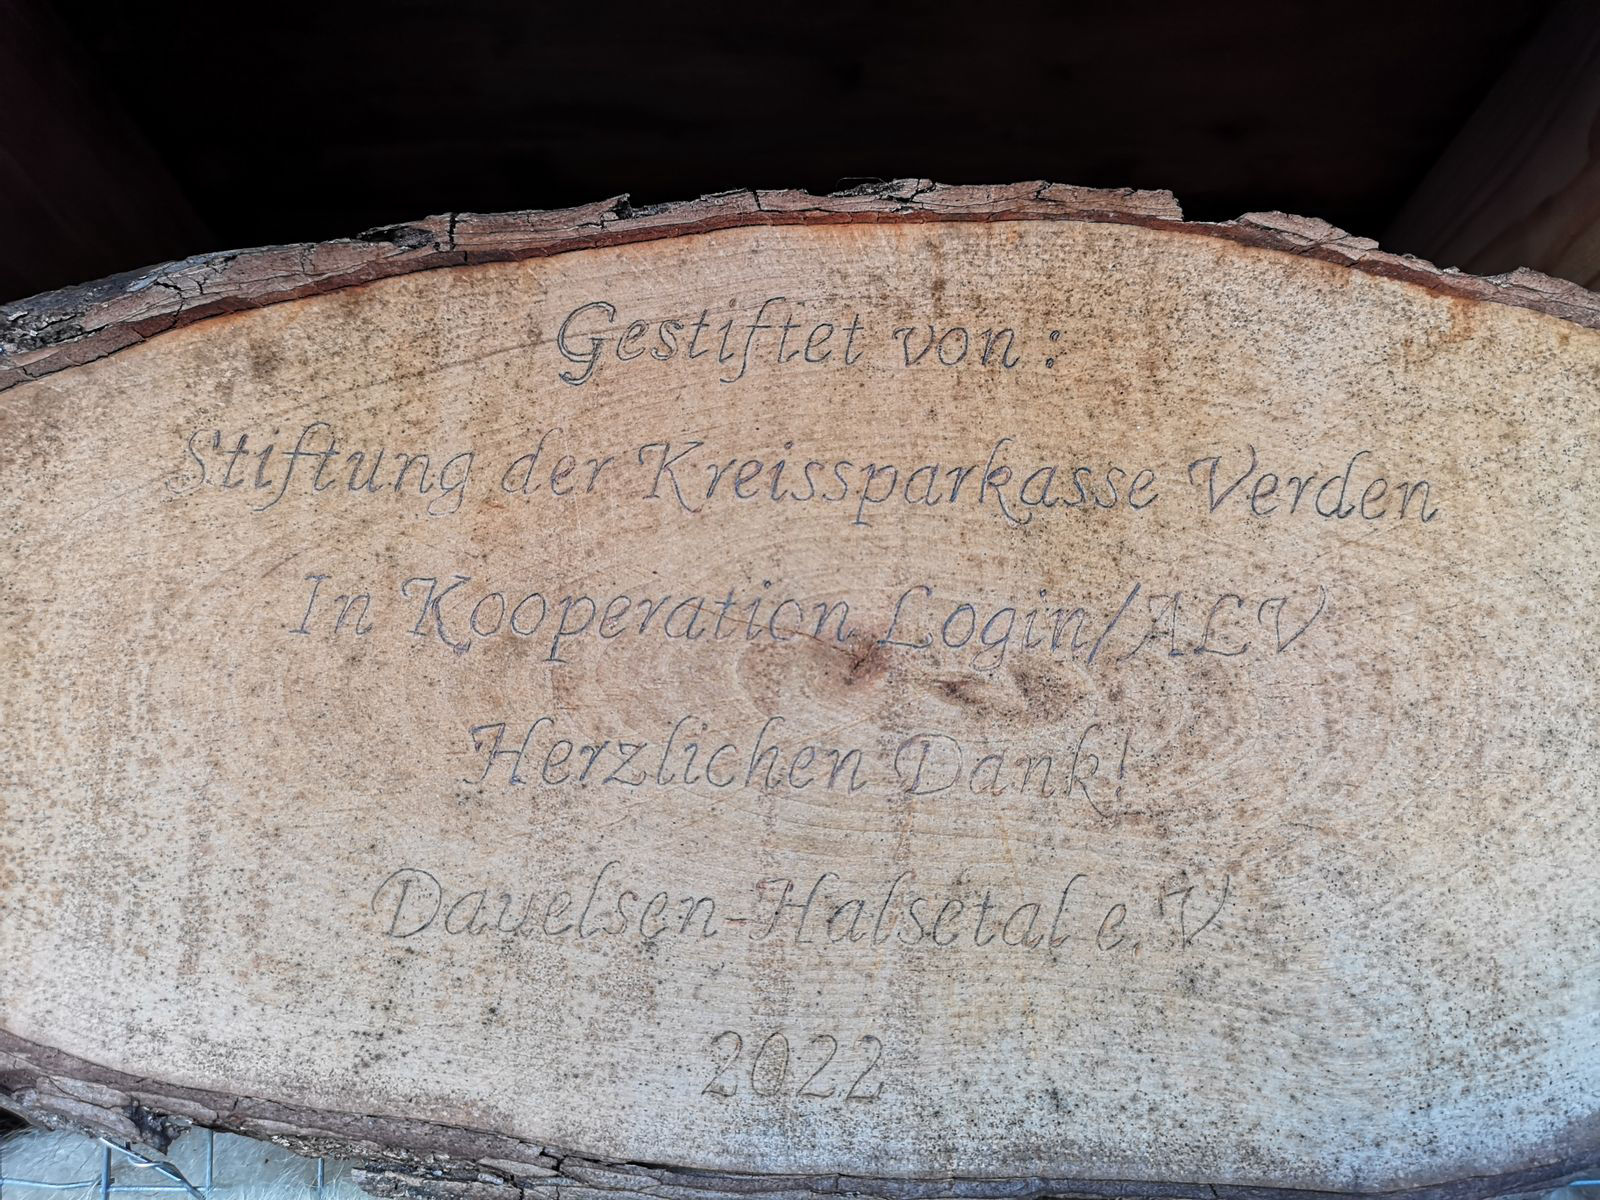 Gestiftet von :
Stiftung der Kreissparkasse Verden
In Kooperation Login/ALV
Herzlichen Dank!
Dauelsen-Halsetal e.V
2022